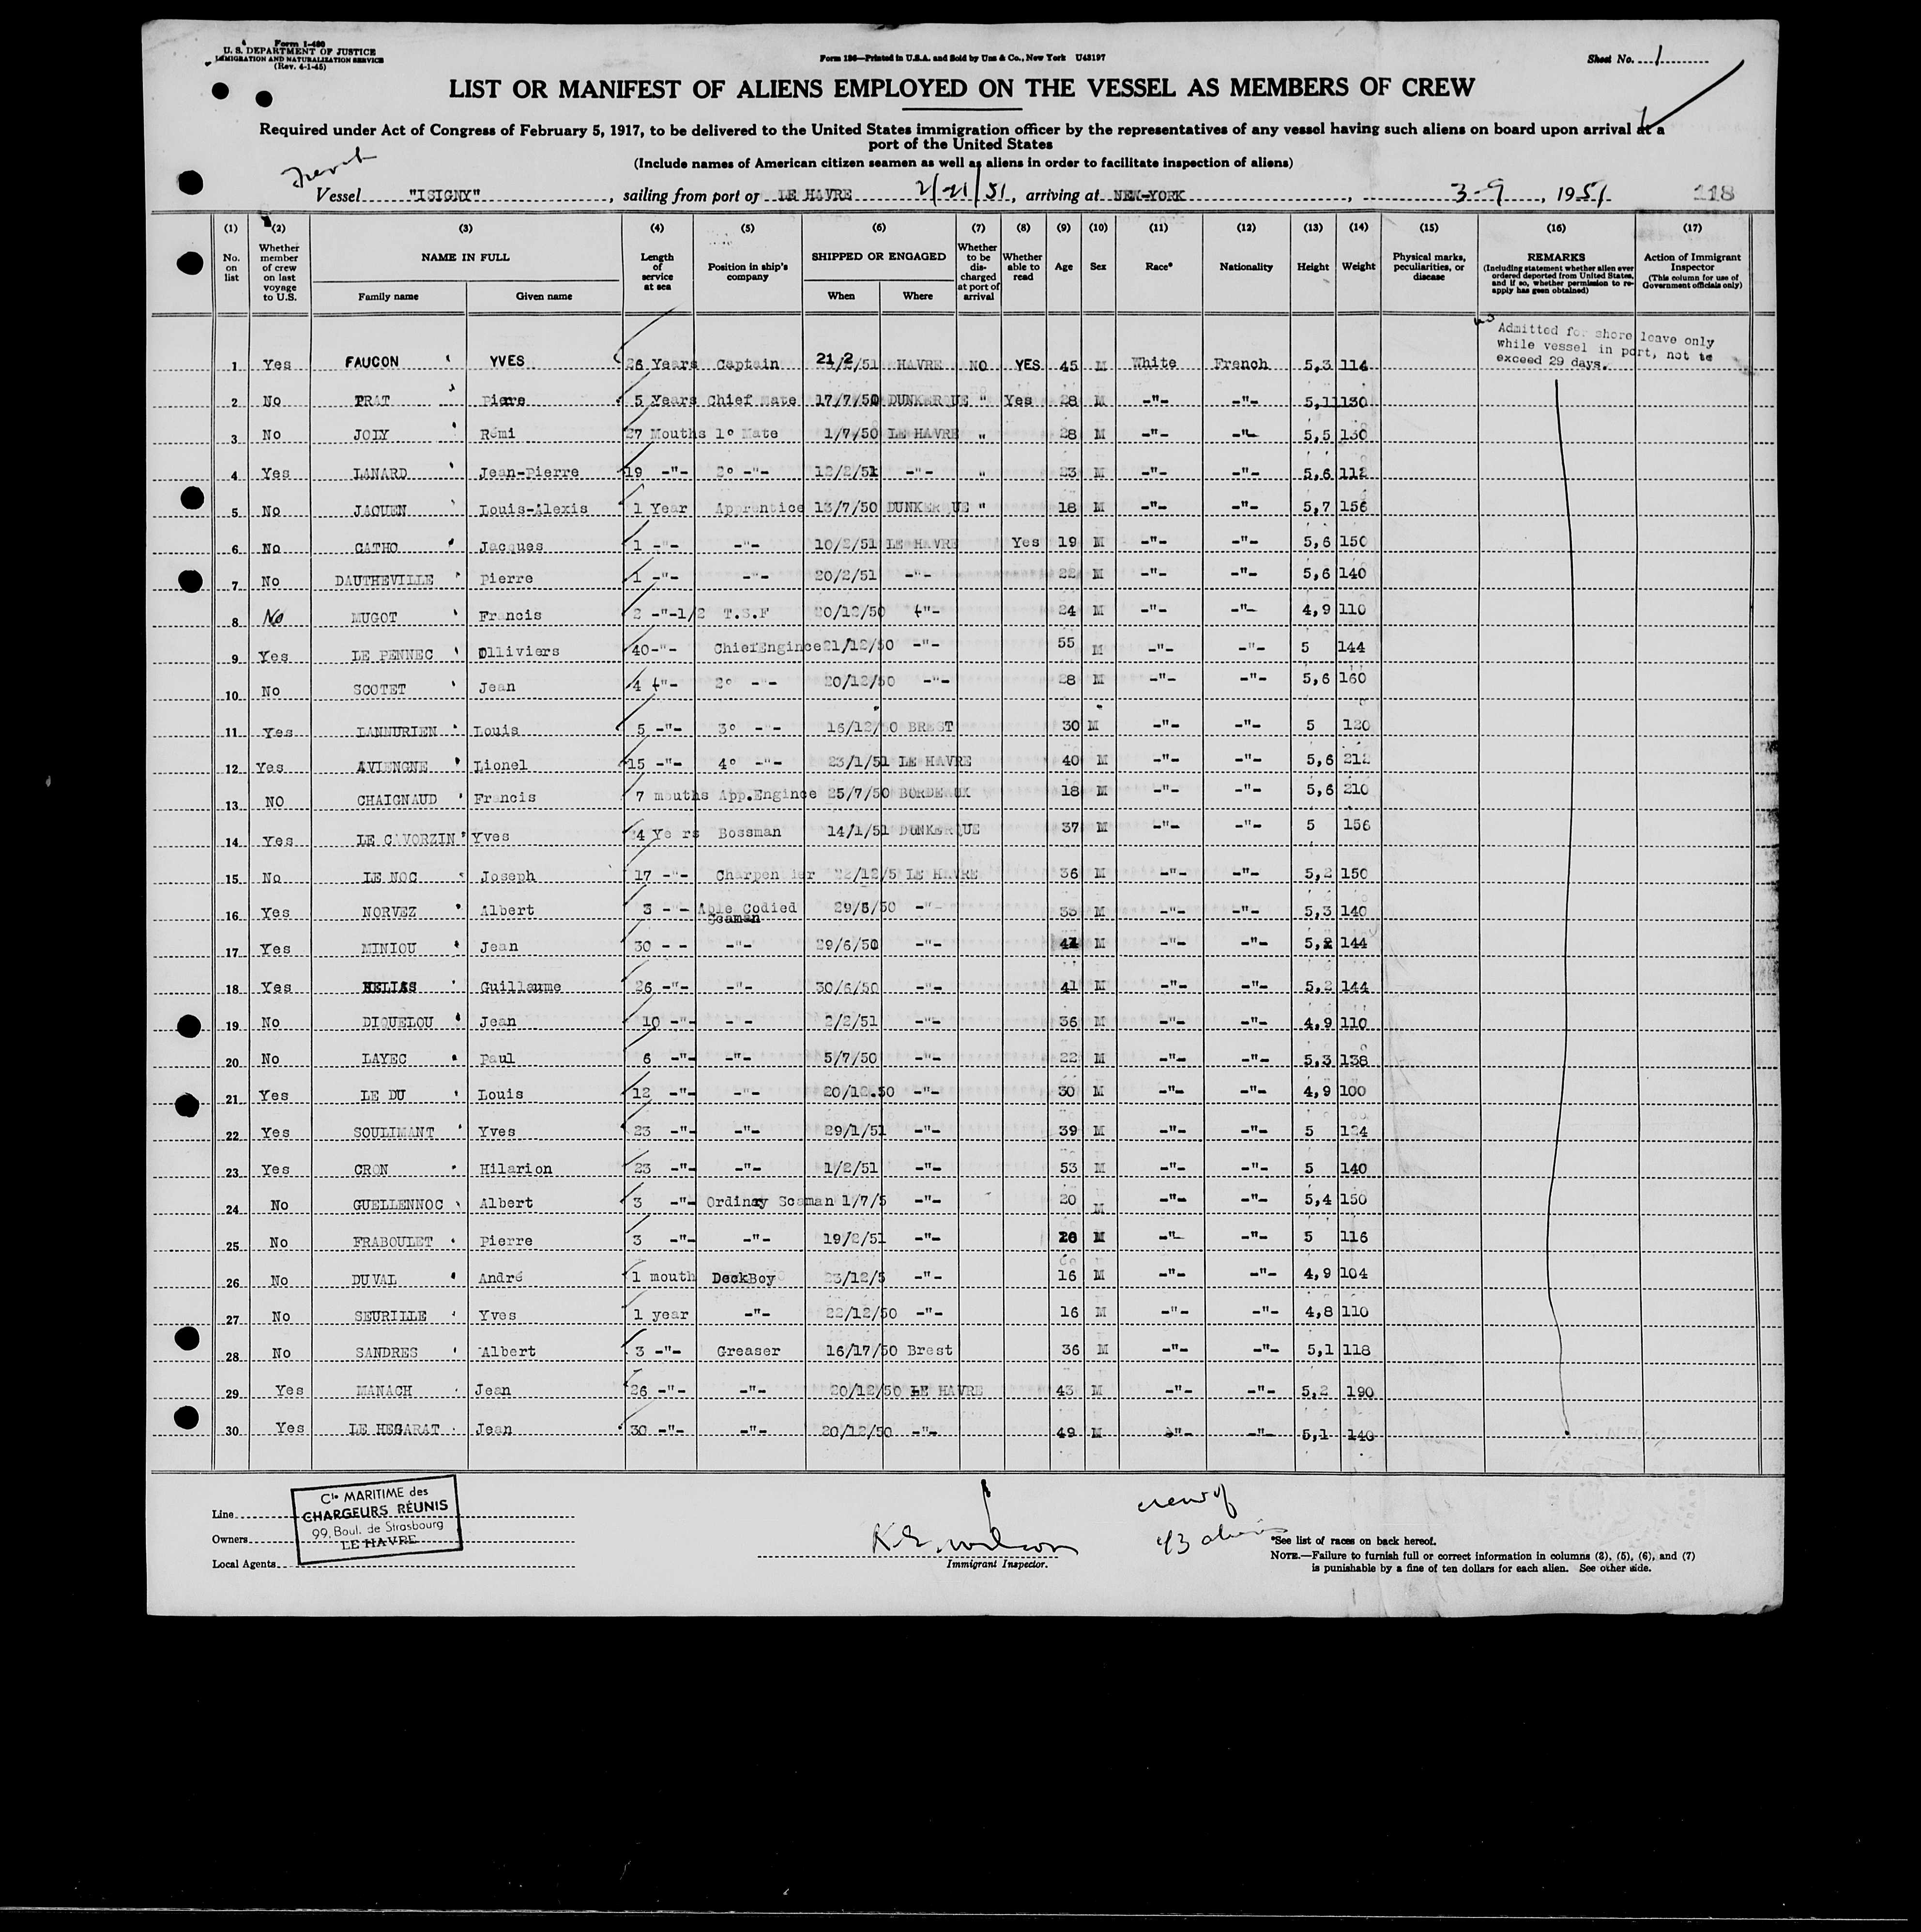 Form I-480
U. S. DEPARTMENT OF JUSTICE
IMMIGRATION AND NATURALIZATION SERVICE
(Rev. 4-1-45)
Form 126—Printed in U.S.A. and Sold by Unz & Co., New York U43197
Sheet No. 1
LIST OR MANIFEST OF ALIENS EMPLOYED ON THE VESSEL AS MEMBERS OF CREW
Required under Act of Congress of February 5, 1917, to be delivered to the United States immigration officer by the representatives of any vessel having such aliens on board upon arrival at a
port of the United States
(Include names of American citizen seamen as well as aliens in order to facilitate inspection of aliens)
French
Vessel "ISIGNY", sailing from port of LE HAVRE 2/21/51, arriving at NEW-YORK, 3-9, 1951 118
(1) (2) (3) (4) (5) (6) (7) (8) (9) (10) (11) (12) (13) (14) (15) (16) (17)
No. on list
Whether member of crew on last voyage to U.S.
NAME IN FULL
Family name Given name
Length of service at sea
Position in ship's company
SHIPPED OR ENGAGED
When Where
Whether to be discharged at port of arrival
Whether able to read
Age Sex Race* Nationality Height Weight
Physical marks, peculiarities, or disease
REMARKS
(Including statement whether alien ever ordered deported from United States, and if so, whether permission to re-apply has geen obtained)
Action of Immigrant Inspector
(This column for use of Government officials only)
Admitted for shore leave only
while vessel in port, not to
exceed 29 days.
1 Yes FAUCON YVES 26 Years Captain 21/2/51 HAVRE NO YES 45 M White French 5,3 114
2 No PRAT Pierre 5 Years Chief mate 17/7/50 DUNKERQUE " Yes 28 M -"- -"- 5,11 130
3 No JOLY Rémi 27 Mouths 1° Mate 1/7/50 LE HAVRE " 28 M -"- -"- 5,5 130
4 Yes LANARD Jean-Pierre 19 -"- 2° -"- 12/2/51 -"- " 23 M -"- -"- 5,6 112
5 No JAOUEN Louis-Alexis 1 Year Apprentice 13/7/50 DUNKERQUE " 18 M -"- -"- 5,7 156
6 No CATHO Jacques 1 -"- -"- 10/2/51 LE HAVRE Yes 19 M -"- -"- 5,6 150
7 No DAUTHEVILLE Pierre 1 -"- -"- 20/2/51 -"- 22 M -"- -"- 5,6 140
8 No MUGOT Francis 2 -"-1/2 T.S.F 20/12/50 -"- 24 M -"- -"- 4,9 110
9 Yes LE PENNEC Olliviers 40-"- ChiefEngince 21/12/50 -"- 55 M -"- -"- 5 144
10 No SCOTET Jean 4 -"- 2° -"- 20/12/50 -"- 28 M -"- -"- 5,6 160
11 Yes LANNURIEN Louis 5 -"- 3° -"- 16/12/ 0 BREST 30 M -"- -"- 5 120
12 Yes AVIENGNE Lionel 15 -"- 4° -"- 23/1/51 LE HAVRE 40 M -"- -"- 5,6 212
13 NO CHAIGNAUD Francis 7 mouths App.Engince 25/7/50 BORDEAUX 18 M -"- -"- 5,6 210
14 Yes LE C VORZIN Yves 24 Ye rs Bossman 14/1/51 DUNKERQUE 37 M -"- -"- 5 156
15 No LE NOC Joseph 17 -"- Charpen ier 22/12/5 LE HAVRE 36 M -"- -"- 5,2 150
16 Yes NORVEZ Albert 3 - - Able Codied Seaman 29/6/50 -"- M -"- -"- 5,3 140
17 Yes MINIOU Jean 30 - - -"- 29/6/50 -"- M -"- -"- 5,2 144
18 Yes HELIAS Guillaume 26 -"- -"- 30/6/50 -"- 41 M -"- -"- 5,2 144
19 No DIQUELOU Jean 10 -"- - - 2/2/51 -"- 36 M -"- -"- 4,9 110
20 No LAYEC Paul 6 -"- -"- 5/7/50 -"- 22 M -"- -"- 5,3 138
21 Yes LE DU Louis 12 -"- -"- 20/12.50 -"- 30 M -"- -"- 4,9 100
22 Yes SOULIMANT Yves 23 -"- -"- 29/1/51 -"- 39 M -"- -"- 5 124
23 Yes CRON Hilarion 23 -"- -"- 1/2/51 -"- 53 M -"- -"- 5 140
24 No GUELLENNOC Albert 3 -"- Ordinay Scaman 1/7/5 -"- 20 M -"- -"- 5,4 150
25 No FRABOULET Pierre 3 -"- -"- 19/2/51 -"- 20 M -"- -"- 5 116
26 No DUVAL André 1 mouth DeckBoy 23/12/5 -"- 16 M -"- -"- 4,9 104
27 No SEURILLE Yves 1 year -"- 22/12/50 -"- 16 M -"- -"- 4,8 110
28 No SANDRES Albert 3 -"- Greaser 16/17/50 Brest 36 M -"- -"- 5,1 118
29 Yes MANACH Jean 26 -"- -"- 20/12/50 LE HAVRE 43 M -"- -"- 5,2 190
30 Yes LE HEGARAT Jean 30 -"- -"- 20/12/50 -"- 49 M -"- -"- 5,1 140
Line
Owners
Local Agents
Cie MARITIME des
CHARGEURS RÉUNIS
99, Boul. de Strasbourg
LE HAVRE
K.E. Wilson
Immigrant Inspector.
crew of
43 aliens
*See list of races on back hereof.
NOTE.—Failure to furnish full or correct information in columns (3), (5), (6), and (7)
is punishable by a fine of ten dollars for each alien. See other side.